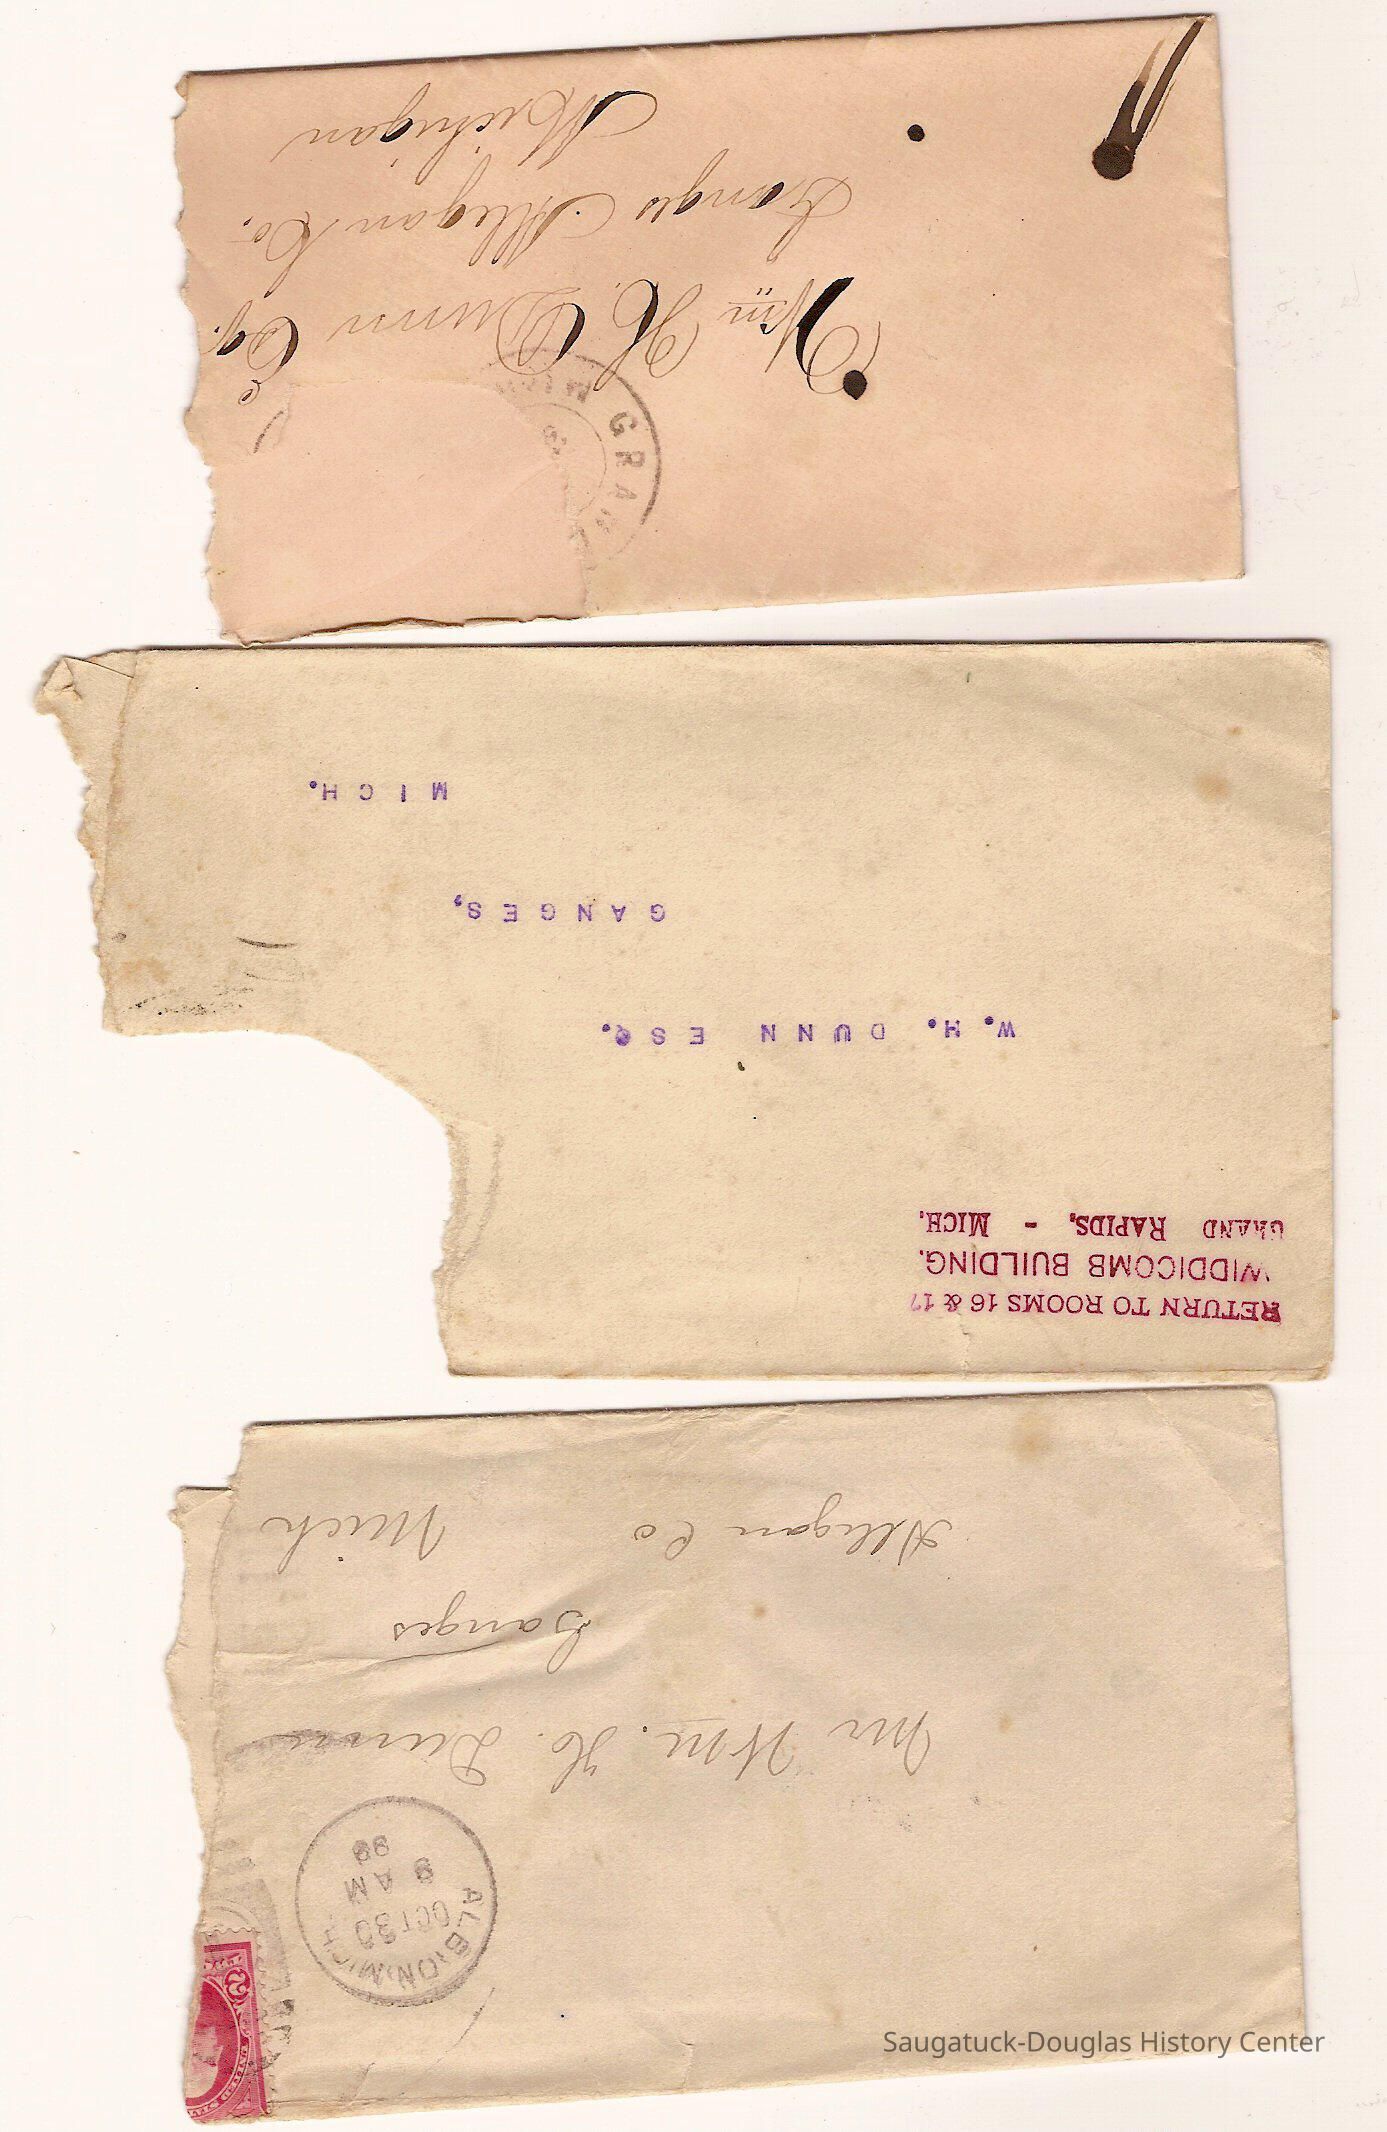 Wm H. Dunn Esq.
Ganges Allegan Co.
Michigan
GRAN
MICH
RETURN TO ROOMS 16 & 17
WIDDICOMB BUILDING.
GRAND RAPIDS, - MICH.
W. H. DUNN ESQ.
GANGES,
MICH.
ALBION, MICH.
OCT 30
9 AM
99
2
Mr Wm. H. Dunn
Ganges
Allegan Co Mich
Saugatuck-Douglas History Center